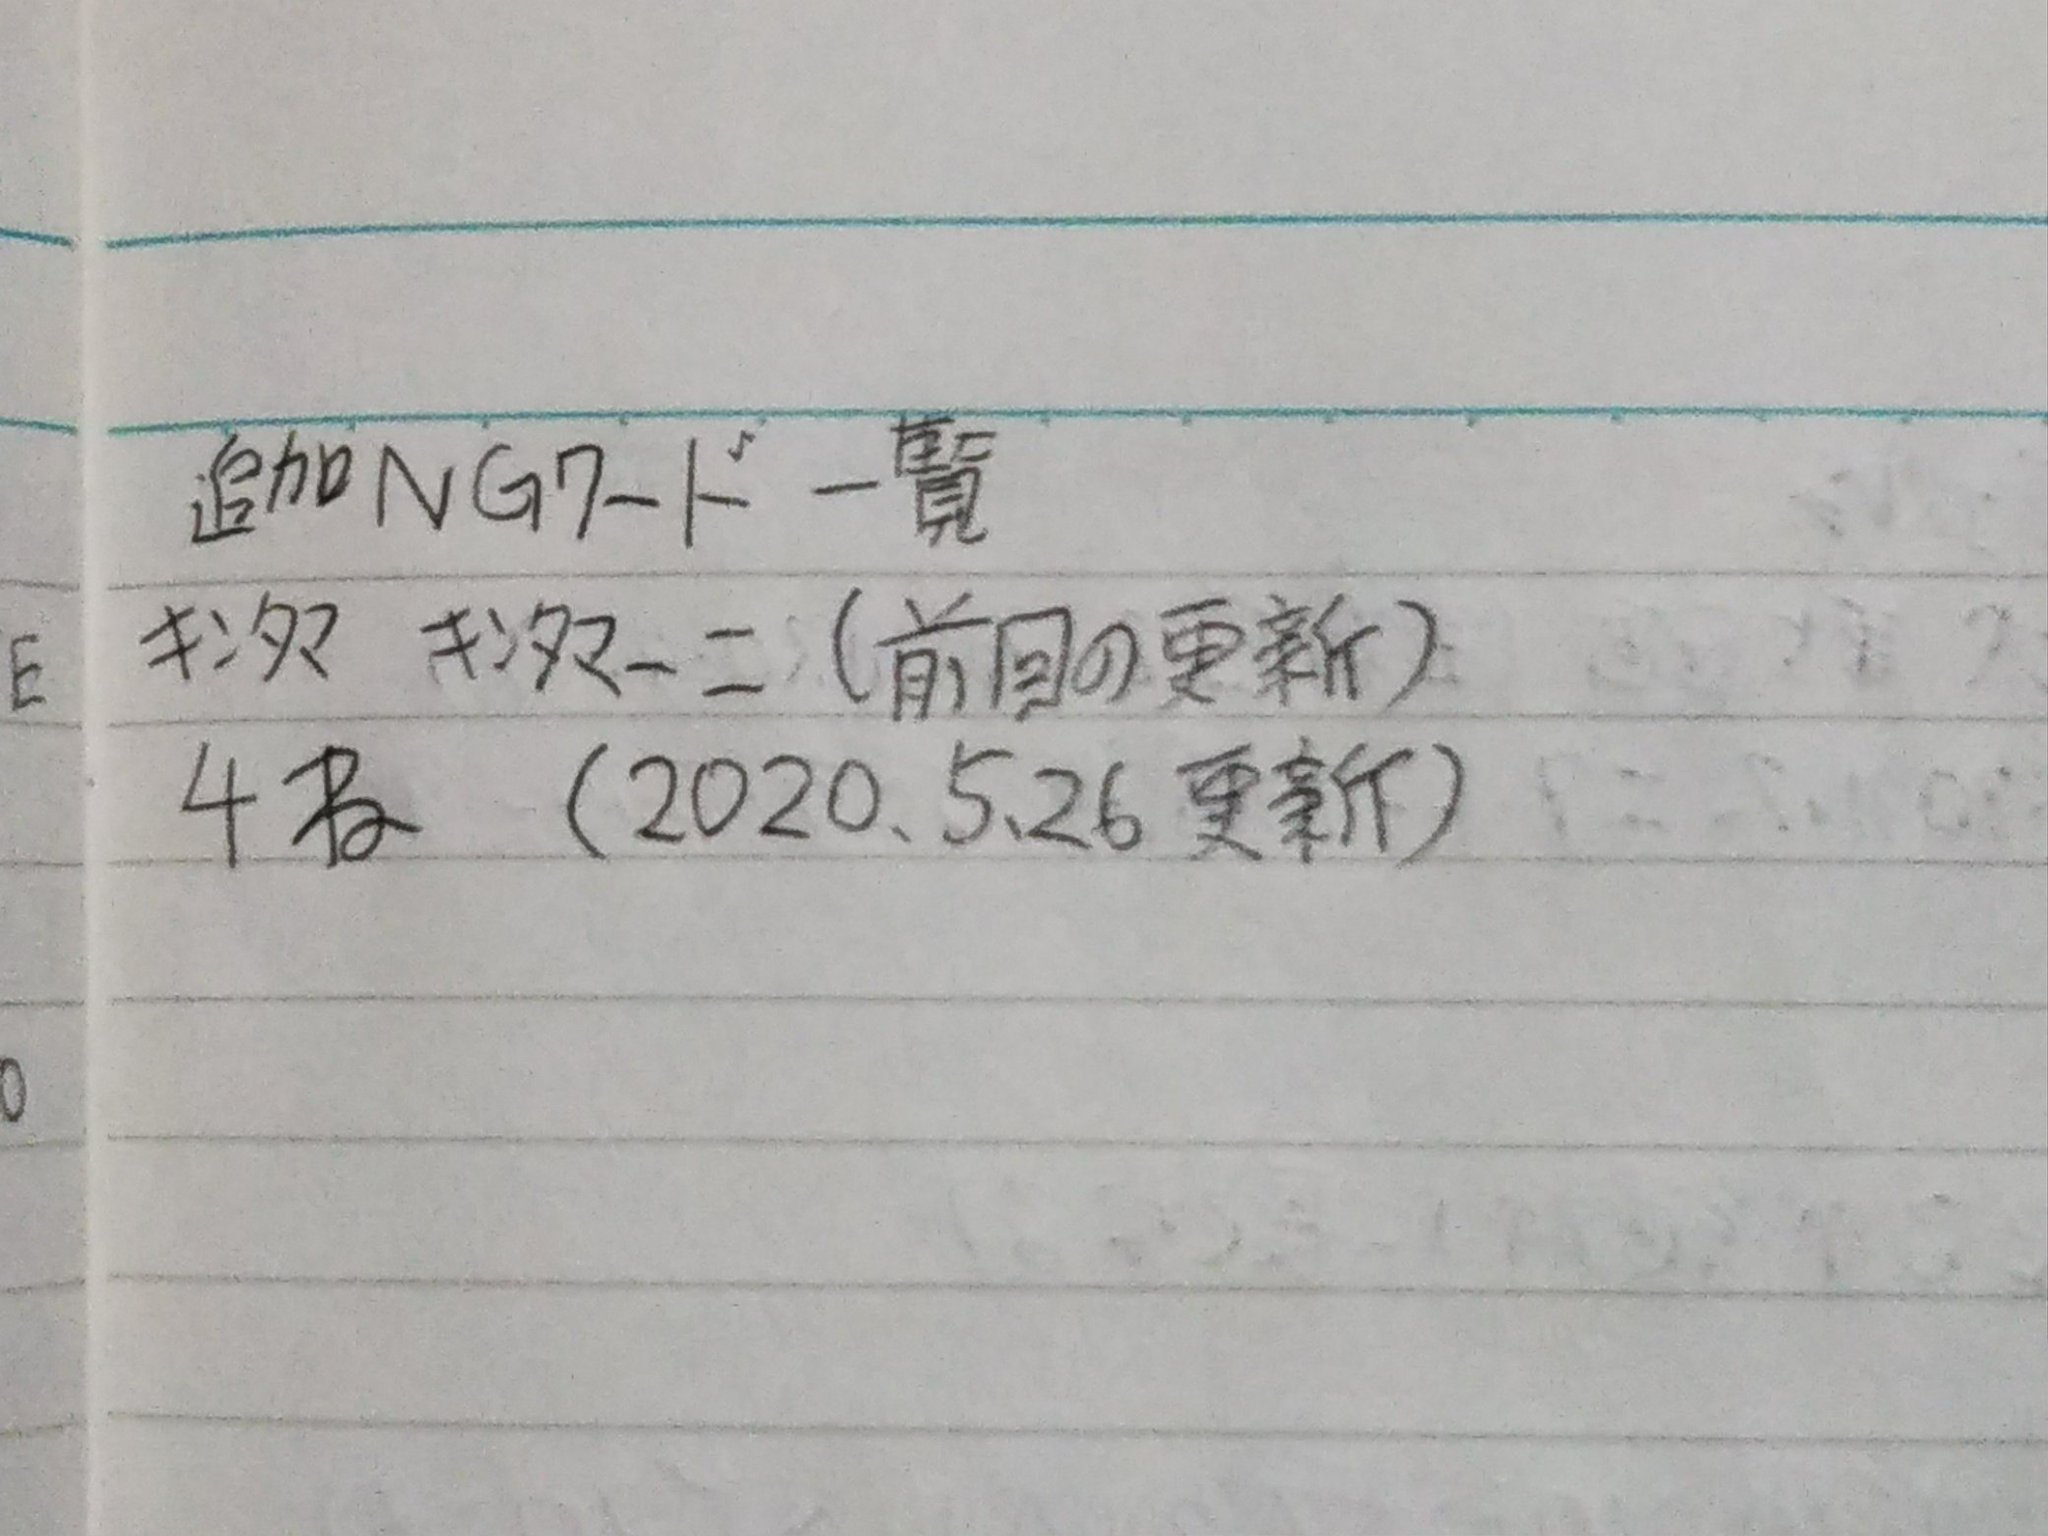 追加NGワード 一覧
キンタマ キンタマーニ(前回の更新)
E
4ね (2020.5.26更新)
0